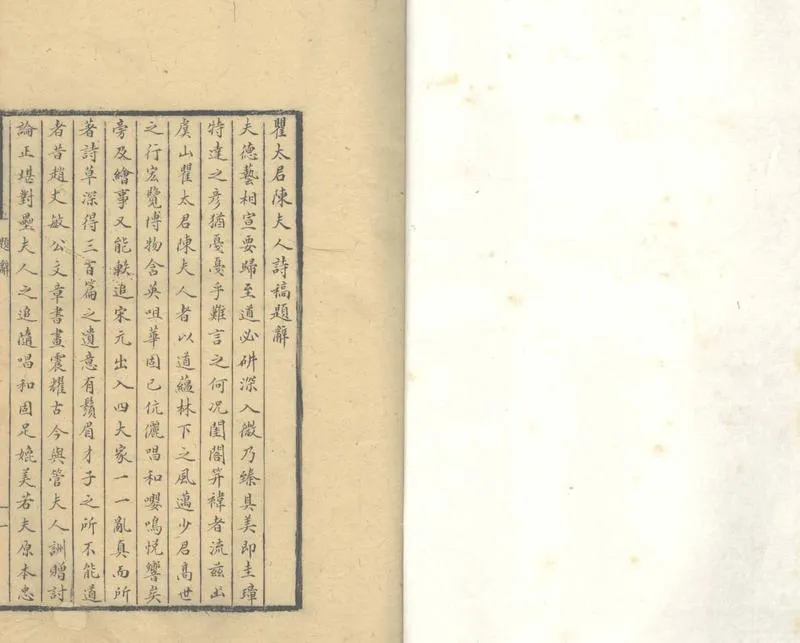 瞿太君陳夫人詩稿題辭
夫德藝相宣要歸至道必研深入微乃臻具美即圭璋
特達之彥猶戞戞乎難言之何况閨閣笄褘者流兹出
虞山瞿太君陳夫人者以道蘊林下之風邁少君髙世
之行宏覽博物含英咀華固已伉儷唱和嚶鳴恱響矣
旁及繪事又能軼追宋元出入四大家一一亂真而所
著詩草深得三百篇之遺意有鬚眉才子之所不能道
者昔趙文敏公文章書畫震耀古今與管夫人詶贈討
論正堪對壘夫人之追隨唱和固足媲美若夫原本忠
題辭
一